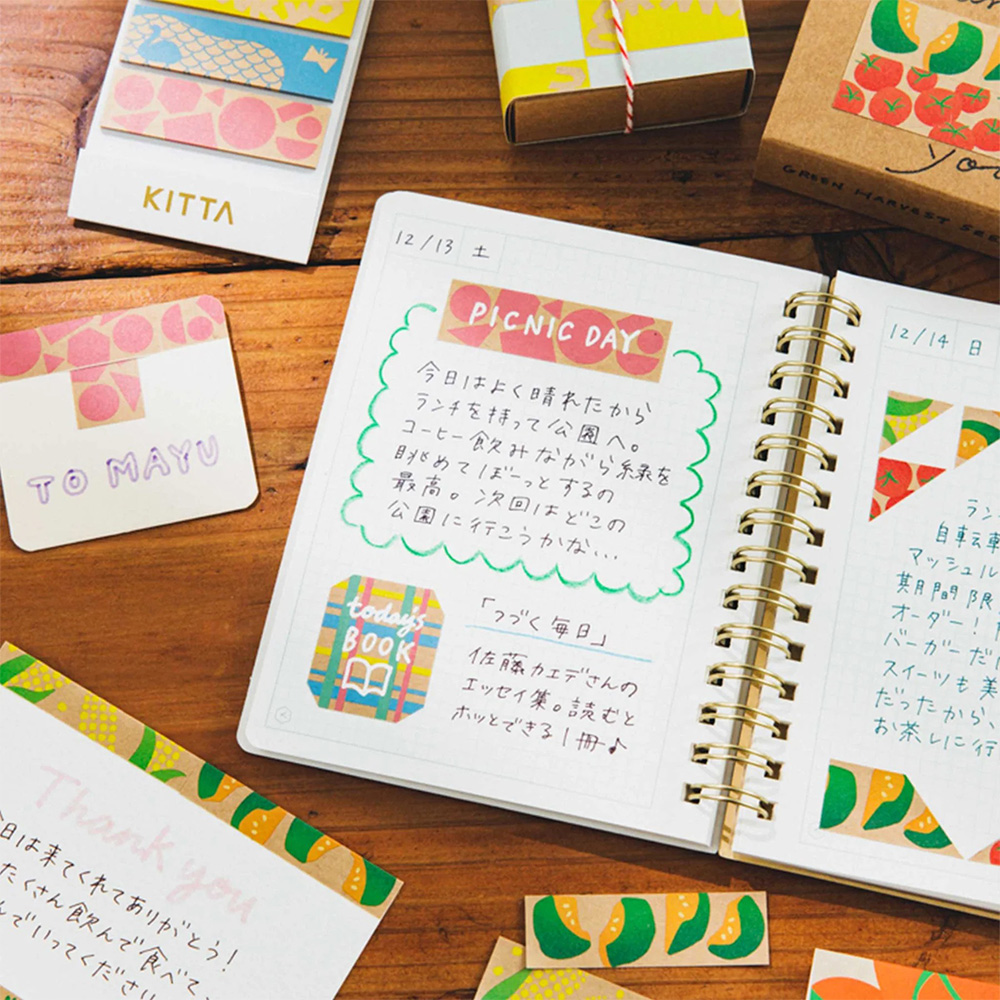 KITTA
GREEN HARVEST
TO MAYU
12/13 土
PICNIC DAY
今日はよく晴れたから
ランチを持って公園へ。
コーヒー飲みながら緑を
眺めてぼーっとするの
最高。次回はどこの
公園に行こうかな...
today's
BOOK
「つづく毎日」
佐藤カエデさんの
エッセイ集。読むと
ホッとできる1冊♪
12/14 日
ラン
自転車
マッシュル
期間限
オーダー!
バーガーだけ
スイーツも美
だったから、
お茶しに行
Thank you
今日は来てくれてありがとう!
たくさん飲んで食べて、
んでいってください